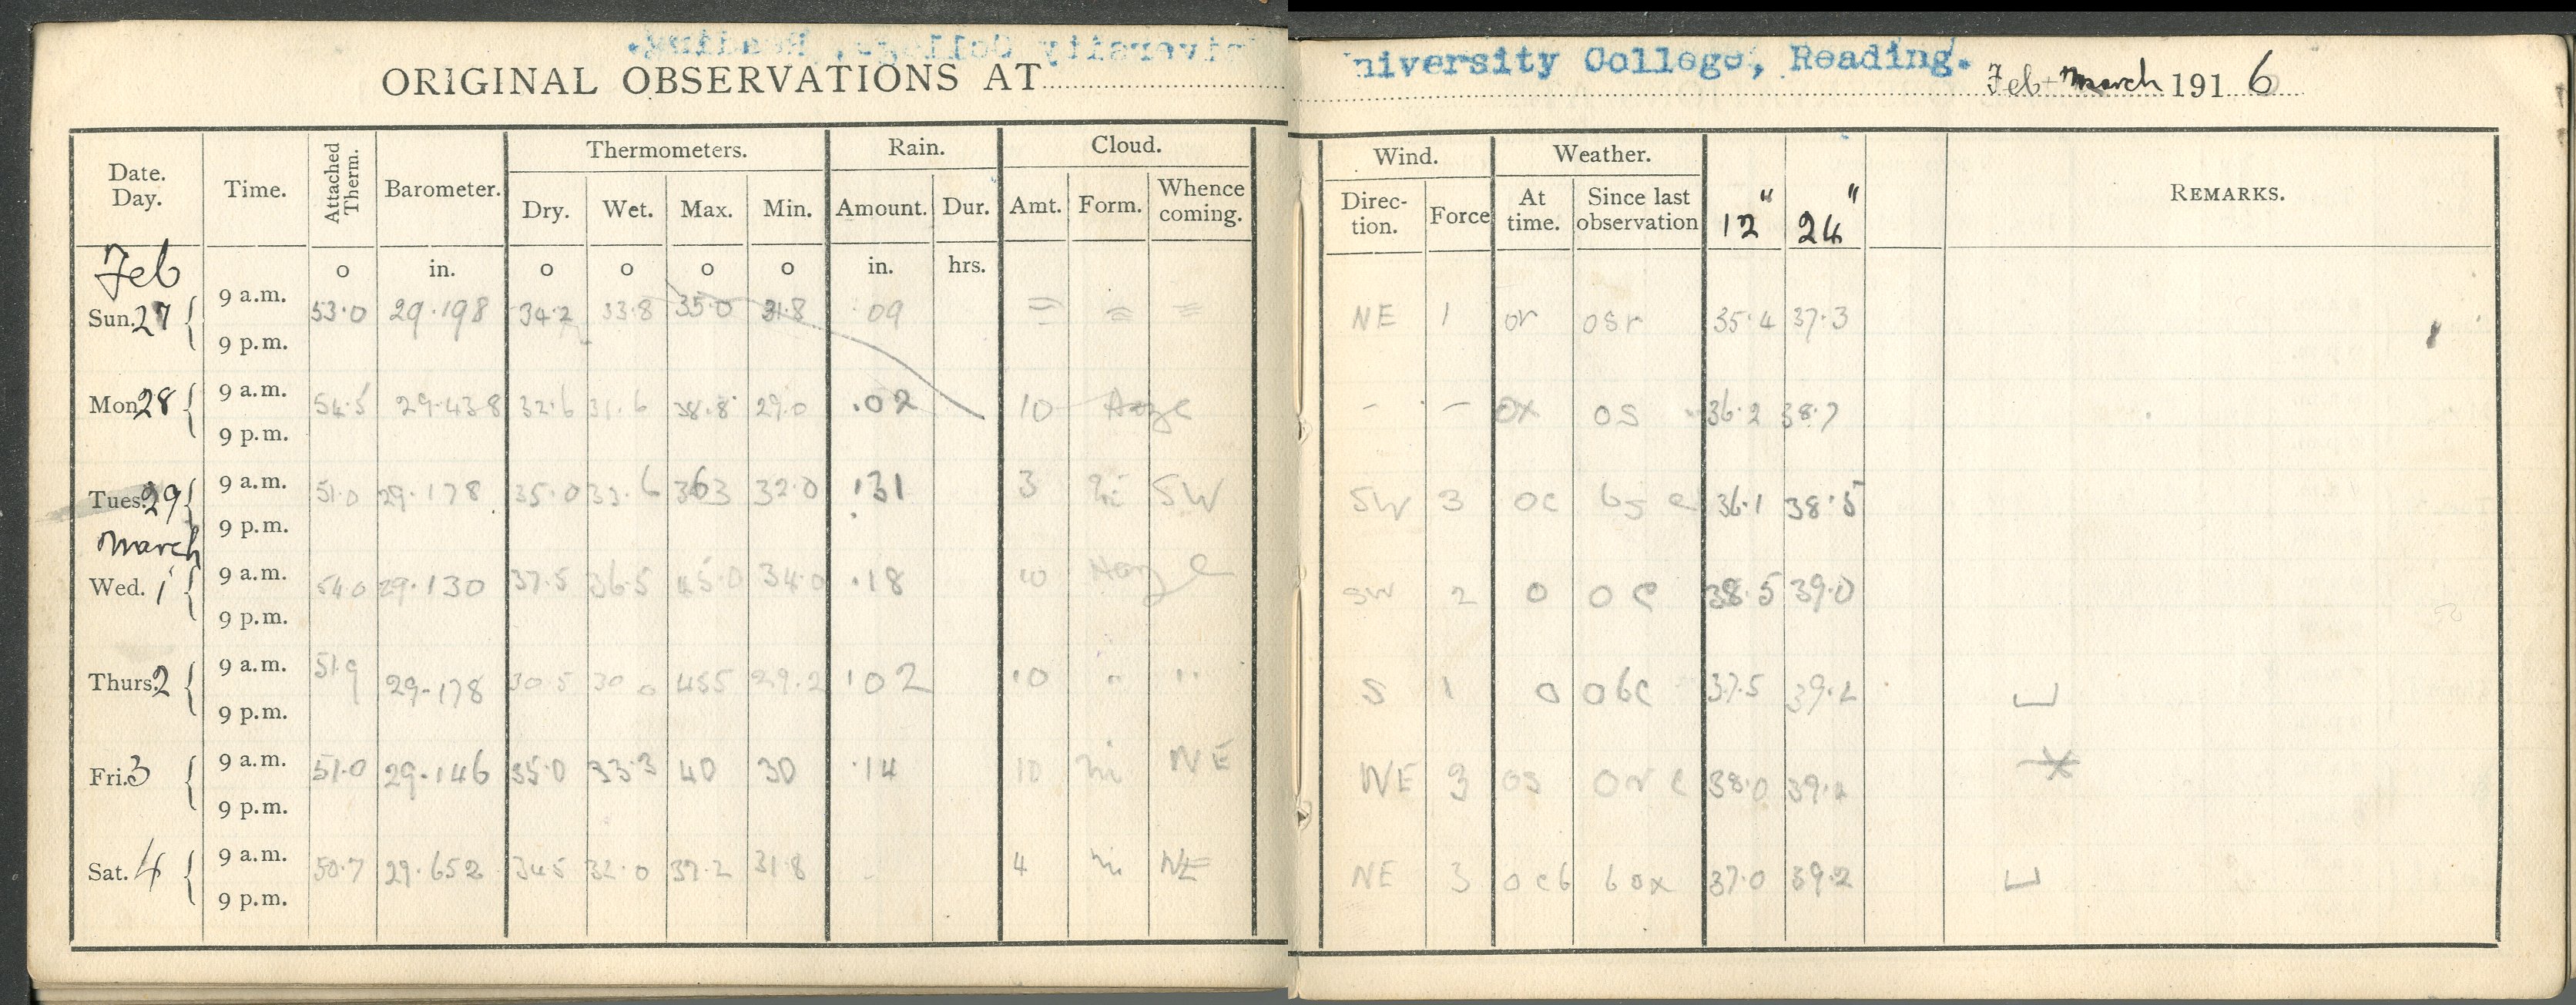 University College, Reading.
ORIGINAL OBSERVATIONS AT niversity College, Reading. Feb + March 1916
Date. Day. Time. Attached Therm. Barometer. Thermometers. Rain. Cloud. Wind. Weather. 12" 24" REMARKS.
Dry. Wet. Max. Min. Amount. Dur. Amt. Form. Whence coming. Direc- tion. Force At time. Since last observation
Feb o in. o o o o in. hrs.
Sun. 27 9 a.m. 53.0 29.198 34.2 33.8 35.0 31.8 .09 = = = NE 1 or osr 35.4 37.3
9 p.m.
Mon 28 9 a.m. 54.5 29.438 32.6 31.6 38.8 29.0 .02 10 Haze - - ox os 36.2 38.7
9 p.m.
Tues. 29 9 a.m. 51.0 29.178 35.0 33.6 363 32.0 .31 3 SW SW 3 oc 36.1 38.5
9 p.m.
March
Wed. 1 9 a.m. 54.0 29.130 37.5 36.5 45.0 34.0 .18 10 Haze SW 2 o o c 38.5 39.0
9 p.m.
Thurs. 2 9 a.m. 51.9 29.178 30.5 30.0 455 29.2 .02 10 " " S 1 o obc 37.5 39.2
9 p.m.
Fri. 3 9 a.m. 51.0 29.146 35.0 33.3 40 30 .14 10 ni NE NE 3 os or c 38.0 39.2
9 p.m.
Sat. 4 9 a.m. 50.7 29.652 34.5 32.0 37.2 31.8 - 4 ni NE NE 3 ocb box 37.0 39.2
9 p.m.